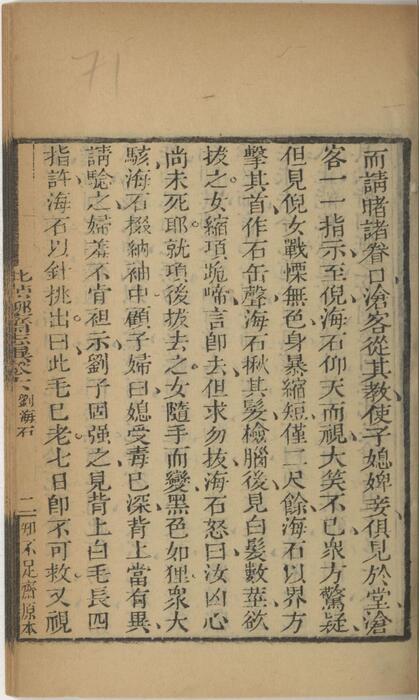 71
而請睹諸眷口滄客從其教使子媳婢妾俱見於堂滄
客一一指示至倪海石仰天而視大笑不已衆方驚疑
但見倪女戰慄無色身暴縮短僅二尺餘海石以界方
擊其首作石缶聲海石揪其髮檢腦後見白髮數莖欲
拔之女縮項跪啼言卽去但求勿拔海石怒曰汝凶心
尚未死耶就項後拔去之女隨手而變黑色如狸衆大
駭海石掇納袖中顧子婦曰媳受毒已深背上當有異
請驗之婦羞不肯袒示劉子固强之見背上白毛長四
指許海石以針挑出曰此毛已老七日卽不可救又視
劉海石
二 知不足齋原本